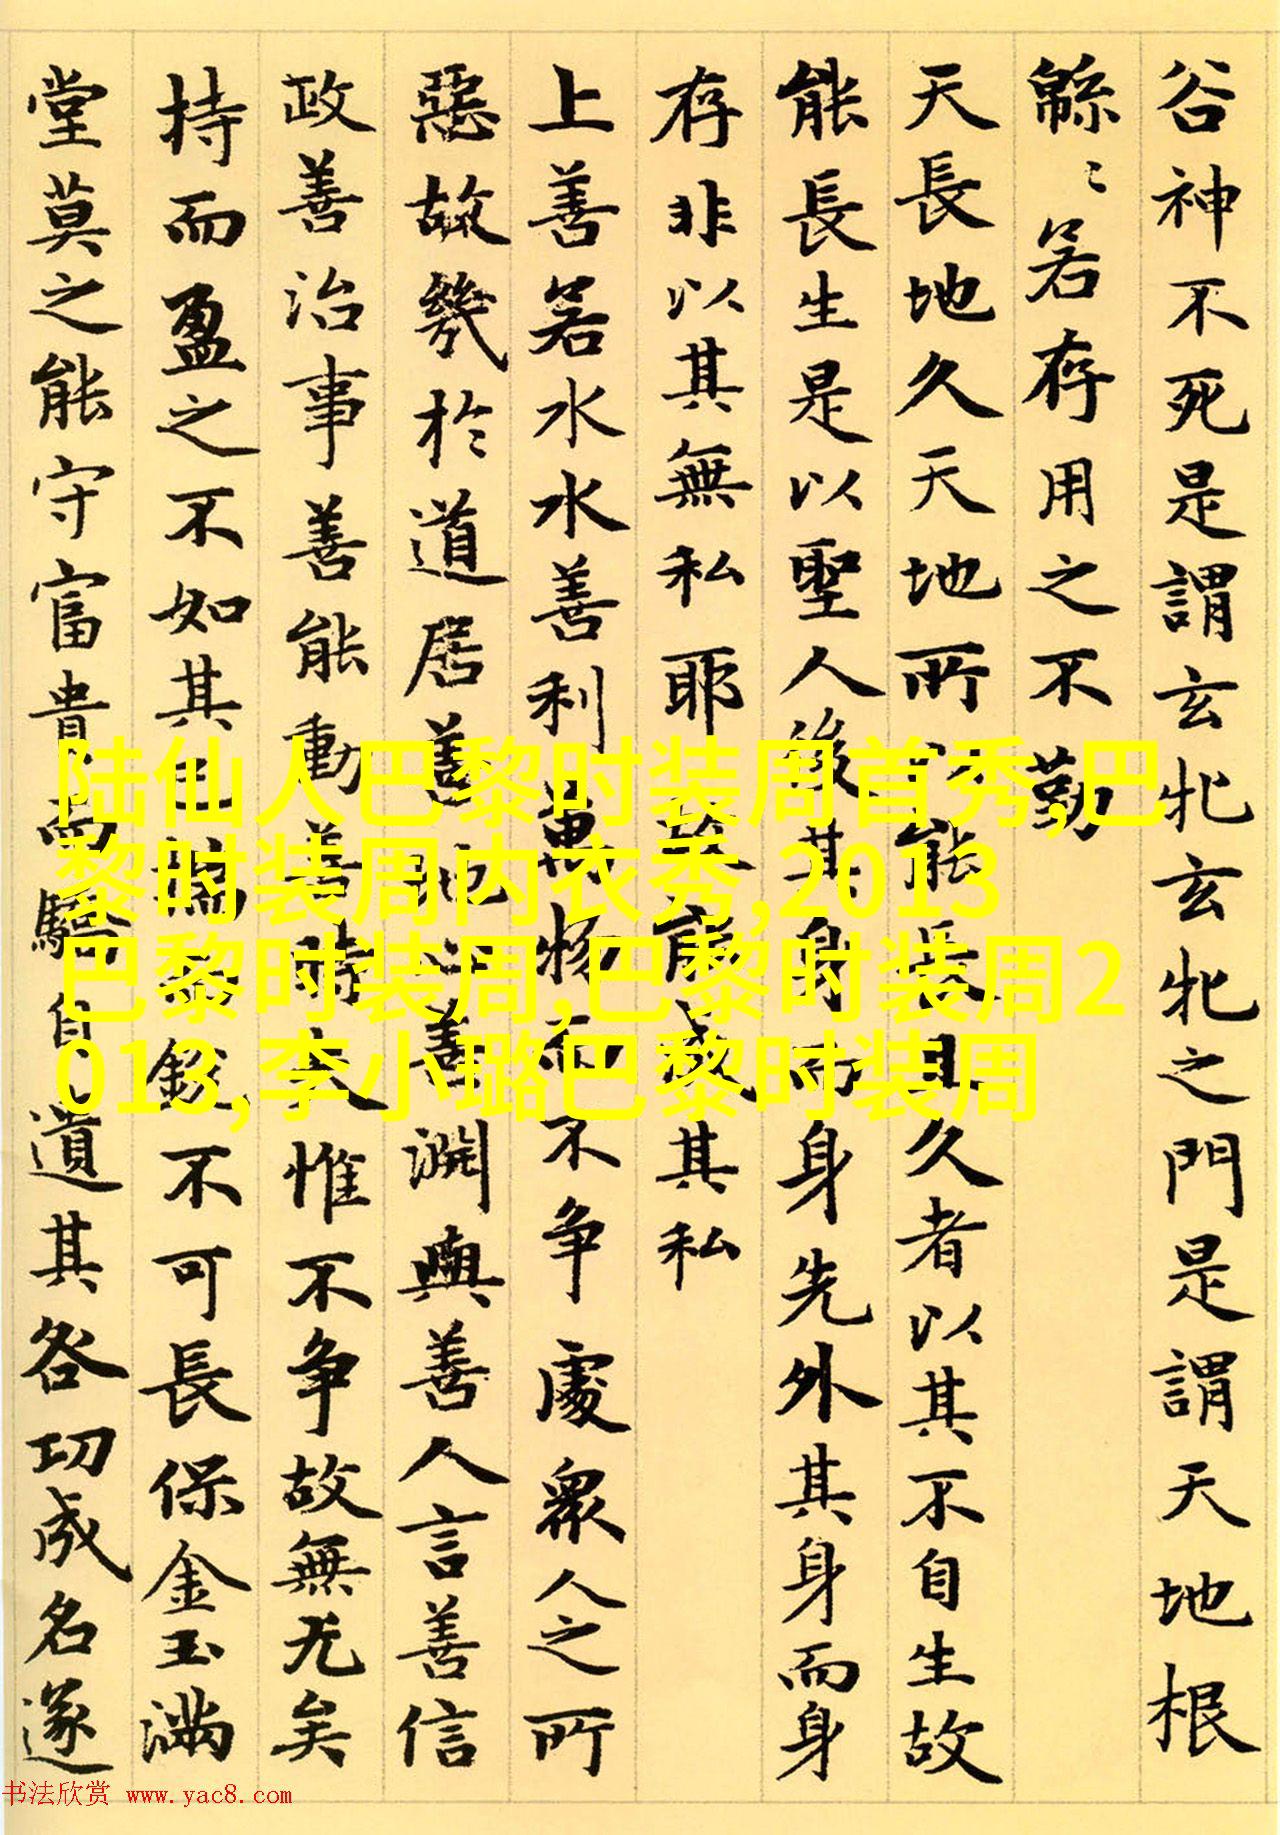 谷神不死是謂玄牝玄牝之門是謂天地根
緜〻若存用之不勤
天長地久天地所以能長且久者以其不自生故
能長生是以聖人後其身而身先外其身而身
存非以其無私耶故能成其私
上善若水水善利萬物而不争處衆人之所
惡故幾於道居善地心善渊與善人言善信
政善治事善能動善時夫惟不争故無尤矣
持而盈之不如其已揣銳不可長保金玉滿
堂莫之能守富貴而驕自遺其咎功成名遂
陆仙人巴黎时装周首秀,巴
黎时装周内衣秀,2013
巴黎时装周,巴黎时装周2
013,李小璐巴黎时装周
书法欣赏 www.yac8.com